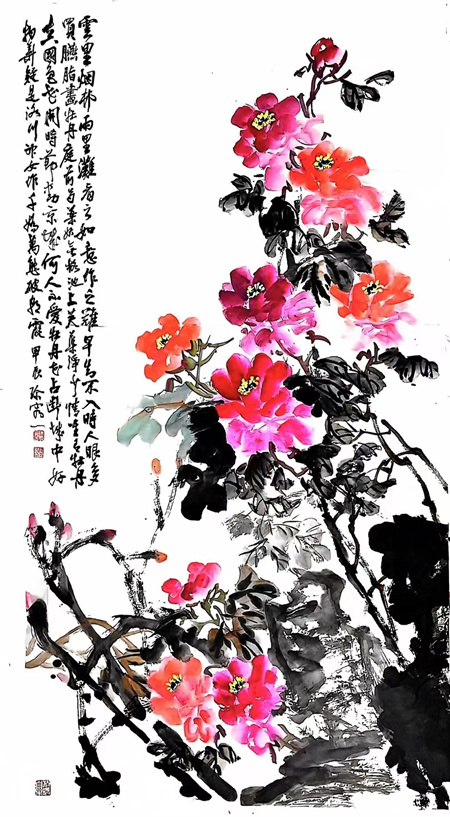 雲里烟邨雨里灘看之如意作之難早知不入時人眼多
買臙脂畫牡丹庭前芍藥妖無格池上芙蕖淨少情唯有牡丹
真國色花開時節動京城何人不愛牡丹花占斷城中好
物華疑是洛川神女作千嬌萬態破朝霞甲辰徐